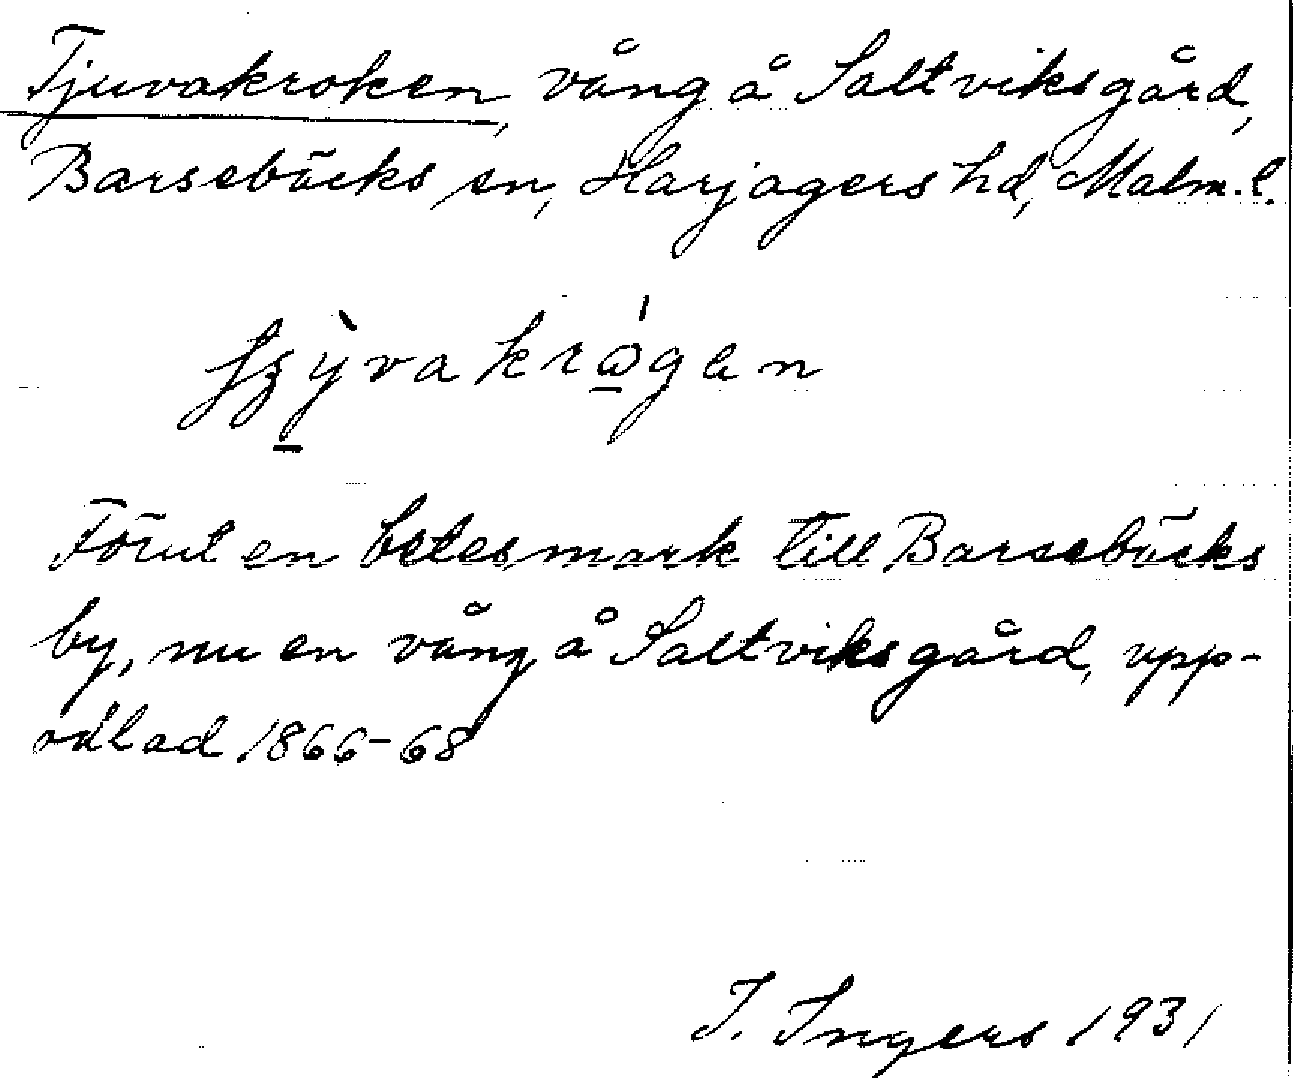 Tjuvakroken, vång å Saltviksgård,
Barsebäcks sn, Harjagers hd, Malm. l.
Förut en betesmark till Barsebäcks
by, nu en vång å Saltviksgård, upp-
odlad 1866-68
I. Ingers 1931